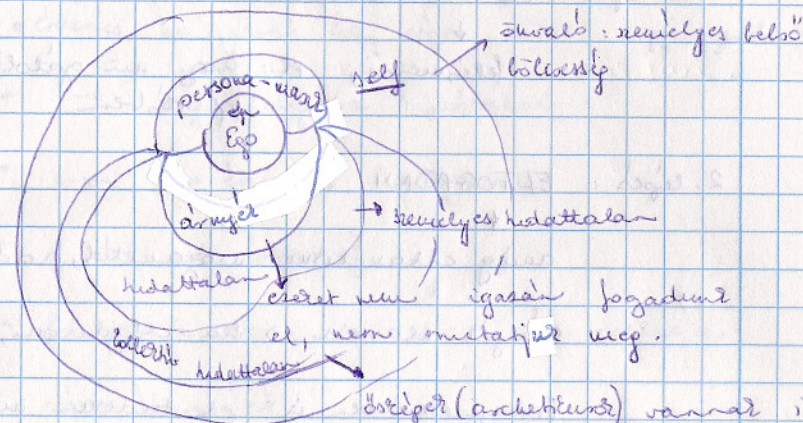 önvaló : személyes belső
self
bölcsesség
persona-maszk
én
Ego
árnyék
személyes tudattalan
tudattalan
ezeket nem igazán fogadunk
el, nem mutatjuk meg.
kollektív
tudattalan
ősképek (archetípusok) vannak i